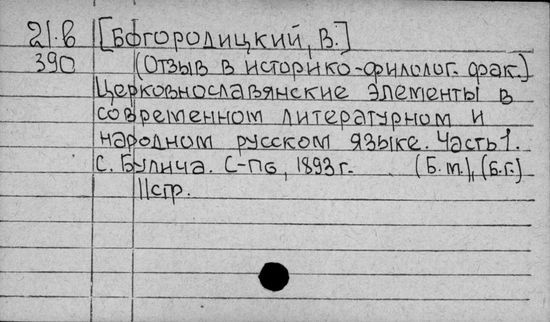 21.в [Богородицкий, В.]
390 (Отзыв в историко-филолог. фак.)
Церковнославянские элементы в
современном литературном и
народном русском языке. Часть 1.
С. Булича. С-Пб, 1893 г. (Б.м.), (Б.г.)
11стр.